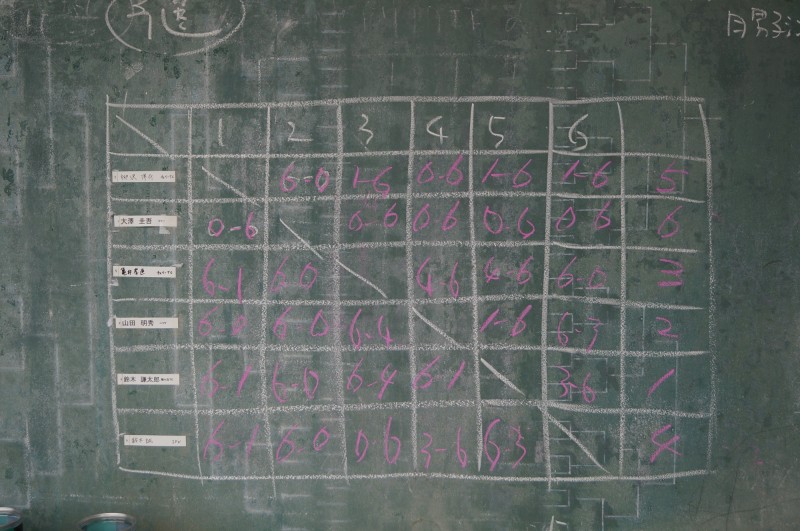 予選
月男子
1 2 3 4 5 6
6-0 1-6 0-6 1-6 1-6 5
大澤 圭吾 0-6 0-6 0-6 0-6 0-6 6
6-1 6-0 4-6 4-6 6-0 3
山田 明秀 6-0 6-0 6-4 1-6 6-3 2
鈴木 謙太郎 6-1 6-0 6-4 6-1 3-6 1
6-1 6-0 0-6 3-6 6-3 4